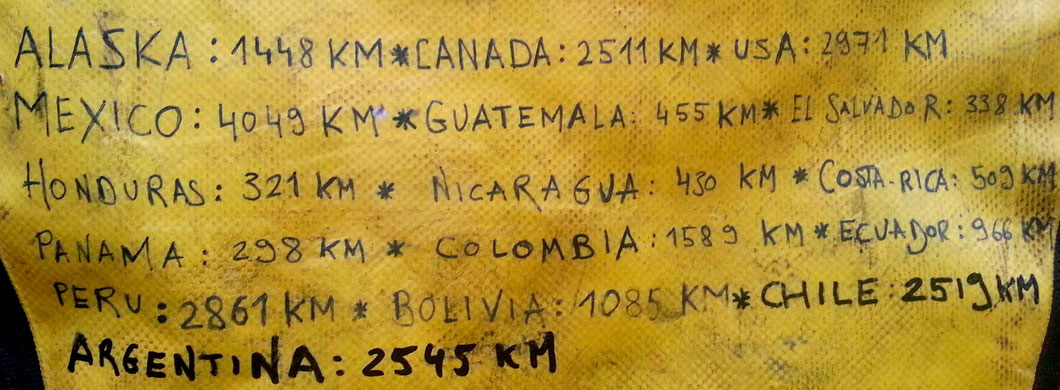 ALASKA: 1448 KM * CANADA: 2511 KM * USA: 2971 KM
MEXICO: 4049 KM * GUATEMALA: 455 KM * EL SALVADOR: 338 KM
HONDURAS: 321 KM * NICARAGUA: 430 KM * COSTA-RICA: 509 KM
PANAMA: 298 KM * COLOMBIA: 1589 KM * ECUADOR: 966 KM
PERU: 2861 KM * BOLIVIA: 1085 KM * CHILE: 2519 KM
ARGENTINA: 2545 KM